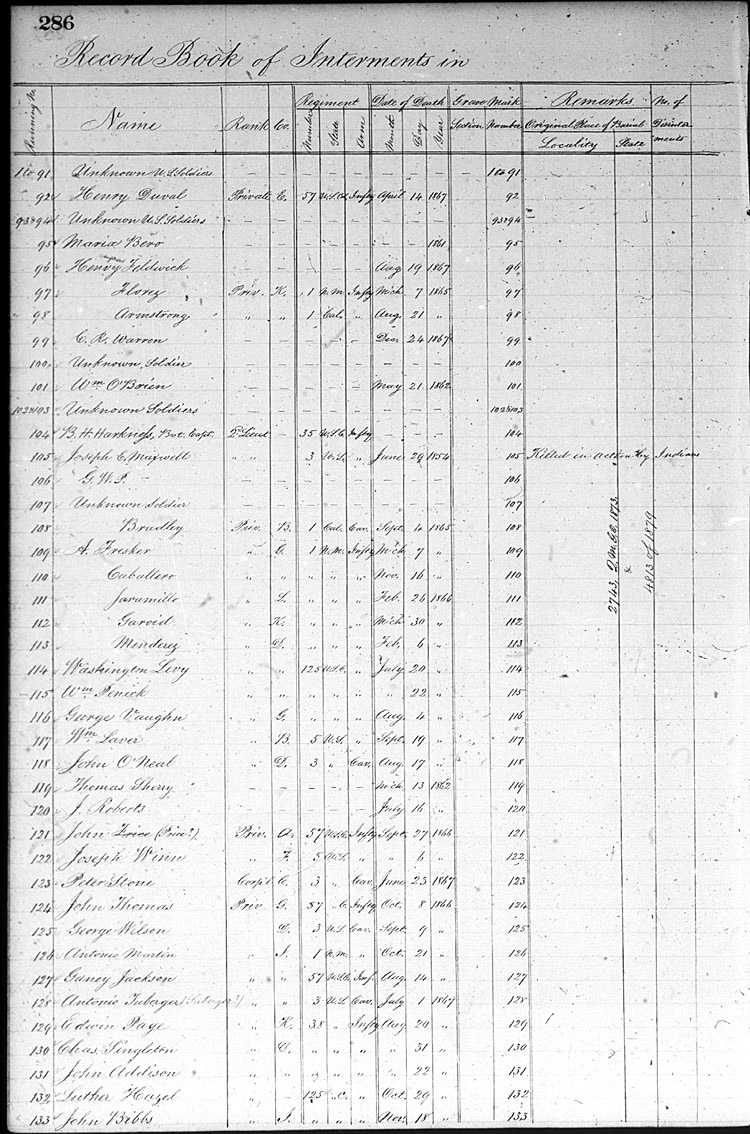 286
Record Book of Interments in
Running No. Name Rank Co. Regiment Number State Arm Date of Death Month Day Year Grave Mark Section Number Remarks Original Place of Burial Locality State No. of Disinterments
1 to 91 Unknown U.S. Soldiers — — — — — — — — 1 to 91
92 Henry Duval Private E. 57 U.S.C. Infty April 14 1867 92
93 & 94 Unknown U.S. Soldiers — — — — — — — — 93 & 94
95 Maria Bero — — — — — — — 1861 95
96 Henry Feldwick — — — — — Aug 19 1867 96
97 Florez Priv. K. 1 N.M. Infty Mch 7 1865 97
98 Armstrong " " 1 Cal. " Aug. 21 " 98
99 C. R. Warren — — — — — Dec. 24 1867 99
100 Unknown Soldier — — — — — — — — 100
101 Wm O'Brien — — — — — May 21 1862 101
102 & 103 Unknown Soldiers — — — — — — — — 102 & 103
104 B. H. Harkness, Bvt. Capt. 2d Lieut — 35 U.S.C. Infty — — — 104
105 Joseph E. Maxwell " " 3 U.S. " June 29 1854 105 Killed in action by Indians
106 G. W. P. — — — — — — — — 106
107 Unknown Soldier — — — — — — — — 107
108 Bradley Priv. B. 1 Cal. Cav. Sept. 4 1865 108
109 A. Fresker " G. 1 N.M. Infty Mch 7 " 109
110 Caballero " " " " " Nov. 16 " 110
111 Jaramillo " L. " " " Feb. 26 1866 111
112 Garoid " K. " " " Mch 30 " 112
113 Menderez " D. " " " Feb. 6 " 113
114 Washington Levy " " 125 U.S.C. " July 20 " 114
115 Wm. Penick " " " " " " 22 " 115
116 George Vaughn " G. " " " Aug. 4 " 116
117 Wm Laver " B. 5 U.S. " Sept. 19 " 117
118 John O'Neal " D. 3 " Cav. Aug. 17 " 118
119 Thomas Sherry — — — — — Mch 13 1862 119
120 J. Roberts — — — — — July 16 " 120
121 John Trice (Price?) Priv. A. 57 U.S.C. Infty Sept. 27 1866 121
122 Joseph Winn " F. 5 U.S. " " 6 " 122
123 Peter Stone Corp'l C. 3 " Cav. June 23 1867 123
124 John Thomas Priv. G. 57 " C. Infty Oct. 8 1866 124
125 George Wilson " D. 3 U.S. Cav. Sept. 9 " 125
126 Antonio Martin " I. 1 N.M. " Oct. 21 " 126
127 Gancy Jackson " " 57 U.S.C. Inf. Aug. 14 " 127
128 Antonio " " 3 U.S. Cav. July 1 1867 128
129 Edwin Page " K. 38 " Infty Aug 20 " 129
130 Chas. Singleton " C. " " " " 31 " 130
131 John Addison " " " " " " 22 " 131
132 Luther Hazel " — 125 " C. " Oct. 29 " 132
133 John Bibbs " I. " " " Nov. 18 " 133
2743, Q.M.G.O. 1873.
&
4813 of 1879